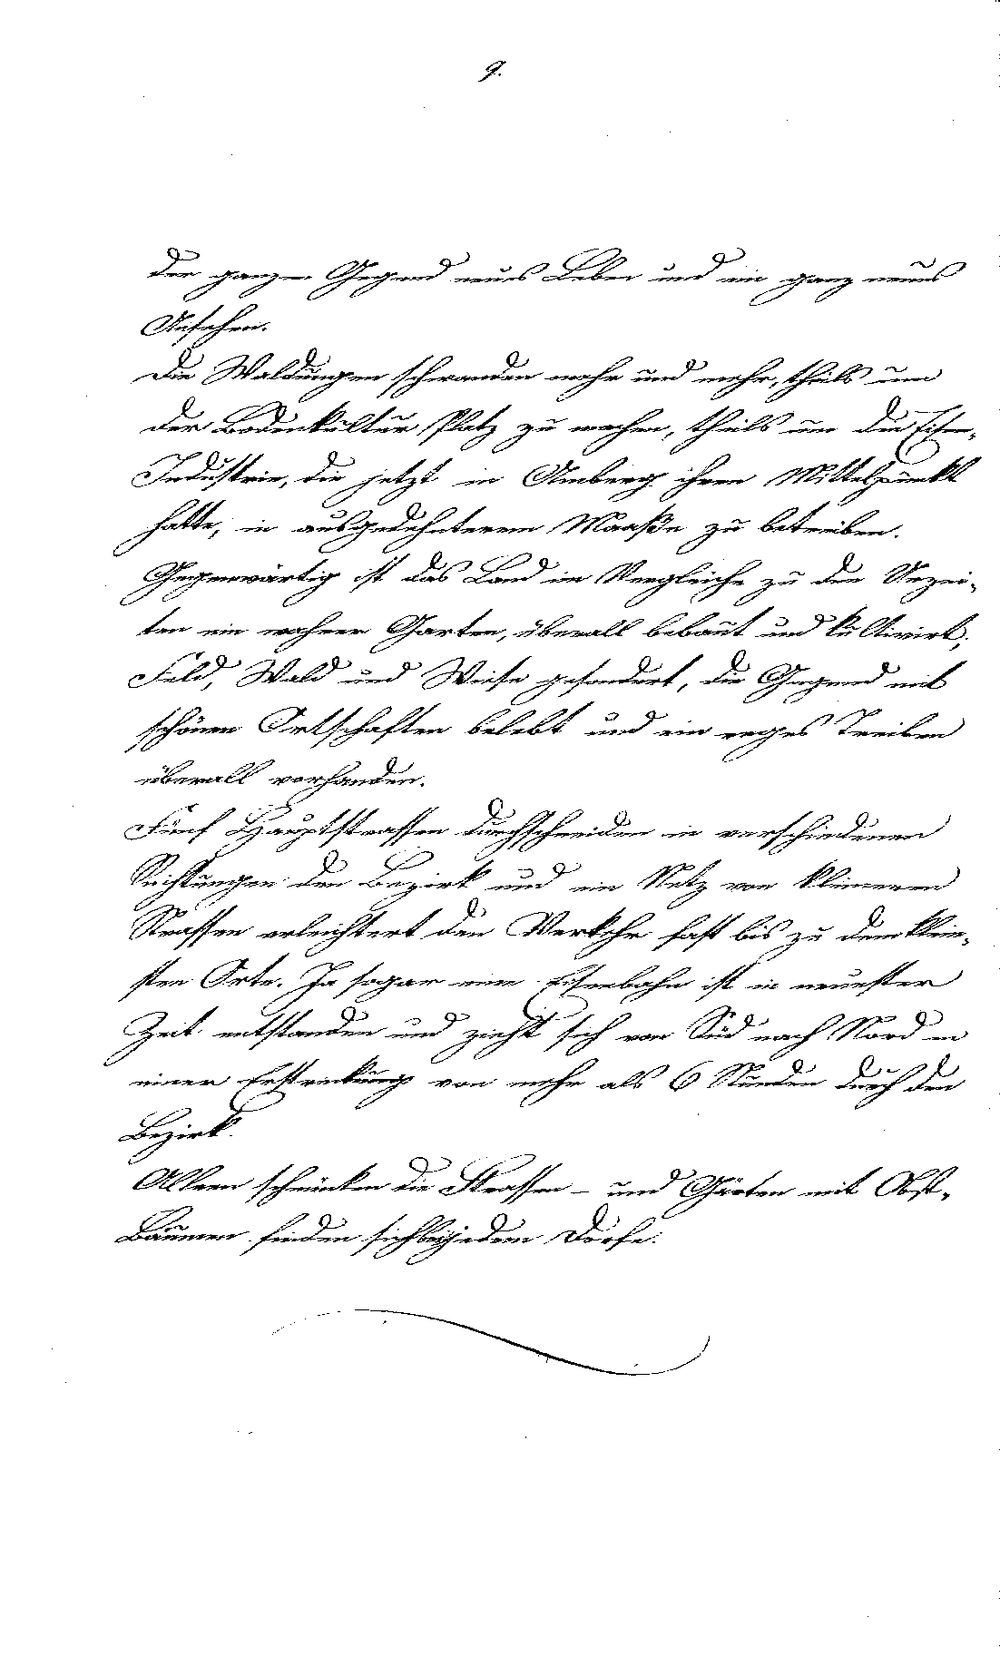 9.
der ganzen Gegend neues Leben und ein ganz neues
Ansehen.
Die Waldungen schwanden mehr und mehr, theils um
der Bodenkultur Platz zu machen, theils um die Eisen-
Industrie, die jetzt in Amberg ihren Mittelpunkt
hatte, in ausgedehnterem Maaße zu betreiben.
Gegenwärtig ist das Land im Vergleiche zu den Urzei-
ten ein wahrer Garten, überall bebaut und kultivirt;
Feld, Wald und Wiese gesondert, die Gegend mit
schönen Ortschaften belebt und ein reges Treiben
überall vorhanden.
Fünf Hauptstrassen durchschneiden in verschiedenen
Richtungen den Bezirk und ein Netz von kleineren
Strassen erleichtert den Verkehr fast bis zu dem klein-
sten Orte. Ja sogar eine Eisenbahn ist in neuester
Zeit entstanden und zieht sich von Süd nach Nord in
einer Erstreckung von mehr als 6 Stunden durch den
Bezirk.
Alleen schmücken die Strassen - und Gärten mit Obst-
Bäumen finden sich bei jedem Dorfe.